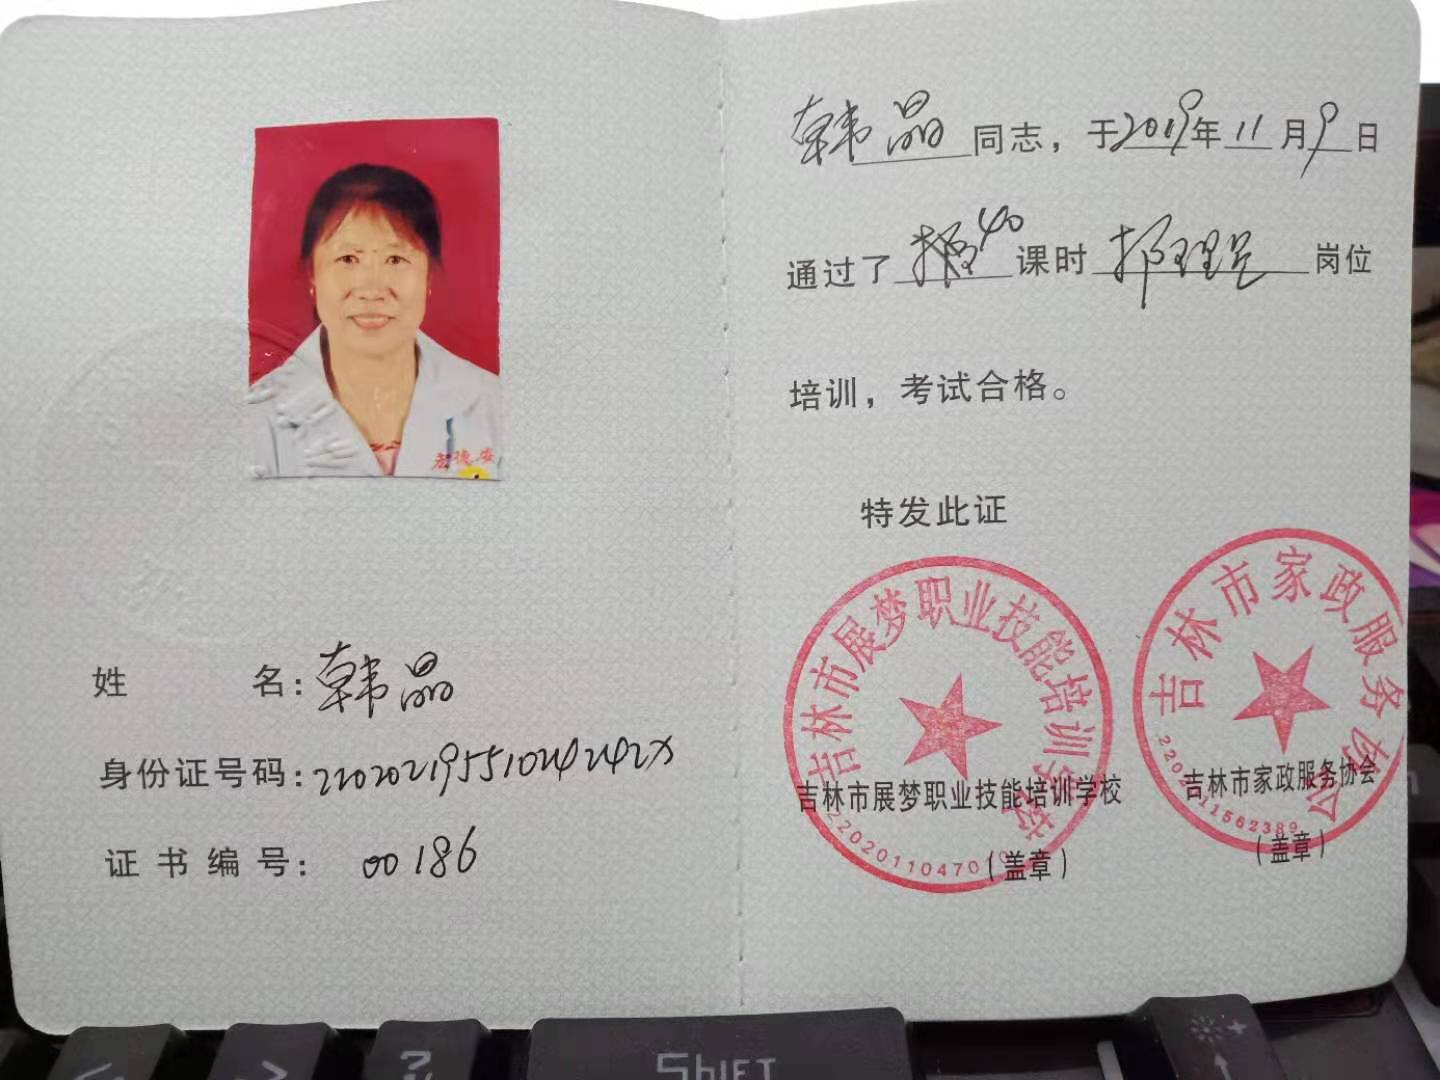 姓 名：韩晶
身份证号码：22020219551024242X
证书编号：00186
韩晶同志，于2019年11月9日
通过了 40 课时护理员岗位
培训，考试合格。
特发此证
吉林市展梦职业技能培训学校
吉林市展梦职业技能培训学校
（盖章）
吉林市家政服务协会
吉林市家政服务协会
（盖章）
SHIFT